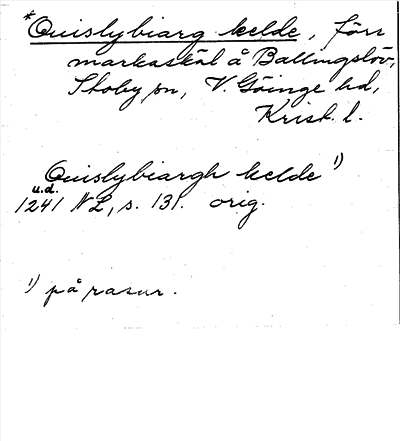 *Quislybiarg kelde, förr
markaskäl å Ballingslöv,
Stoby sn, V. Göinge hd,
Krist. l.
Quislybiargh kelde 1)
u.d.
1241 NL, s. 131. orig.
1) på rasur.